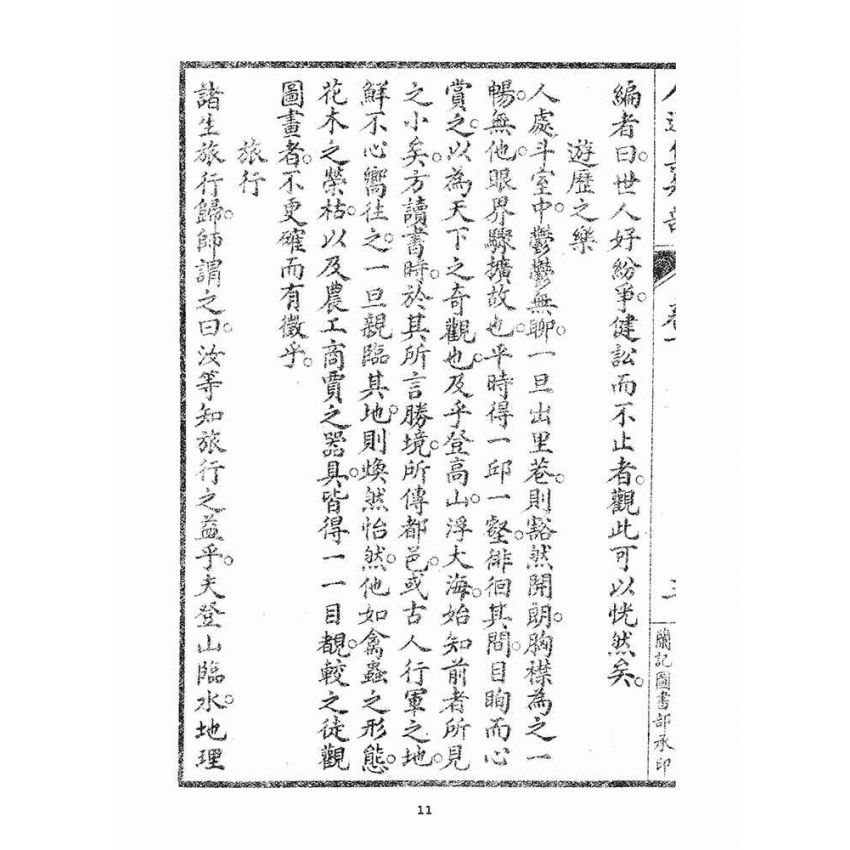 編者曰。世人好紛爭。健訟而不止者。觀此可以恍然矣。
遊歷之樂
人處斗室中。鬱鬱無聊。一旦出里巷。則豁然開朗。胸襟為之一
暢。無他。眼界驟擴故也。平時得一邱一壑。徘徊其間。目眴而心
賞之。以為天下之奇觀也。及乎登高山。浮大海。始知前者所見
之小矣。方讀書時。於其所言勝境。所傳都邑。或古人行軍之地。
鮮不心嚮往之。一旦親臨其地。則煥然怡然。他如禽蟲之形態。
花木之榮枯。以及農工商賈之器具。皆得一一目覩。較之徒觀
圖畫者。不更確而有徵乎。
旅行
諸生旅行歸。師謂之曰。汝等知旅行之益乎。夫登山臨水。地理
卷一
三
蘭記圖書部承印
11